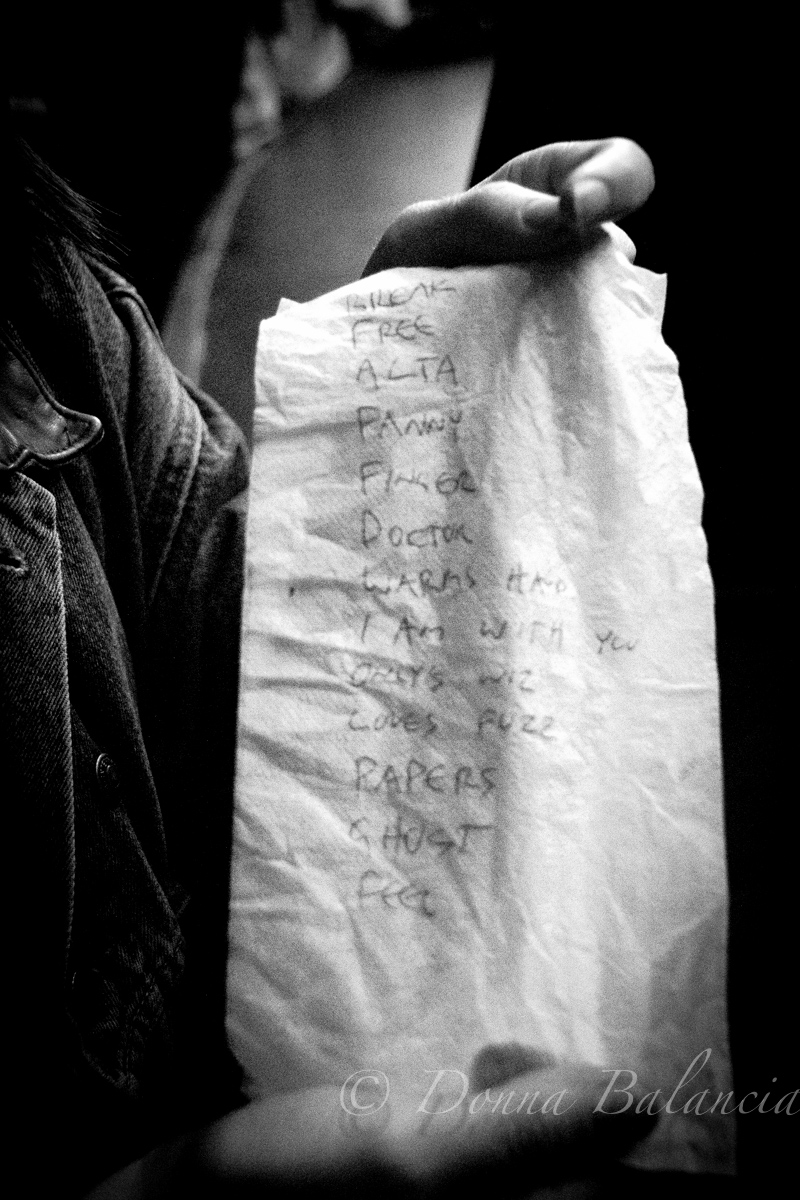 BREAK
FREE
ALTA
PANNY
FINGER
DOCTOR
WARMS HAND
I AM WITH YOU
WIZ
LOVES FUZZ
PAPERS
GHOST
FEEL
© Donna Balancia